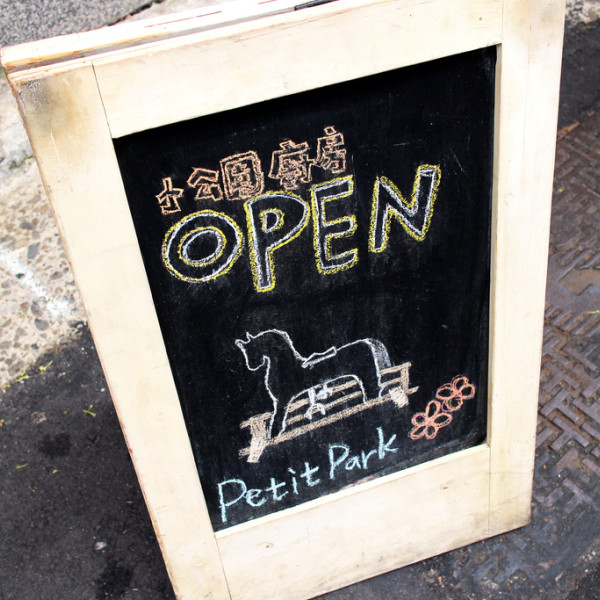 小公園廚房
OPEN
Petit Park